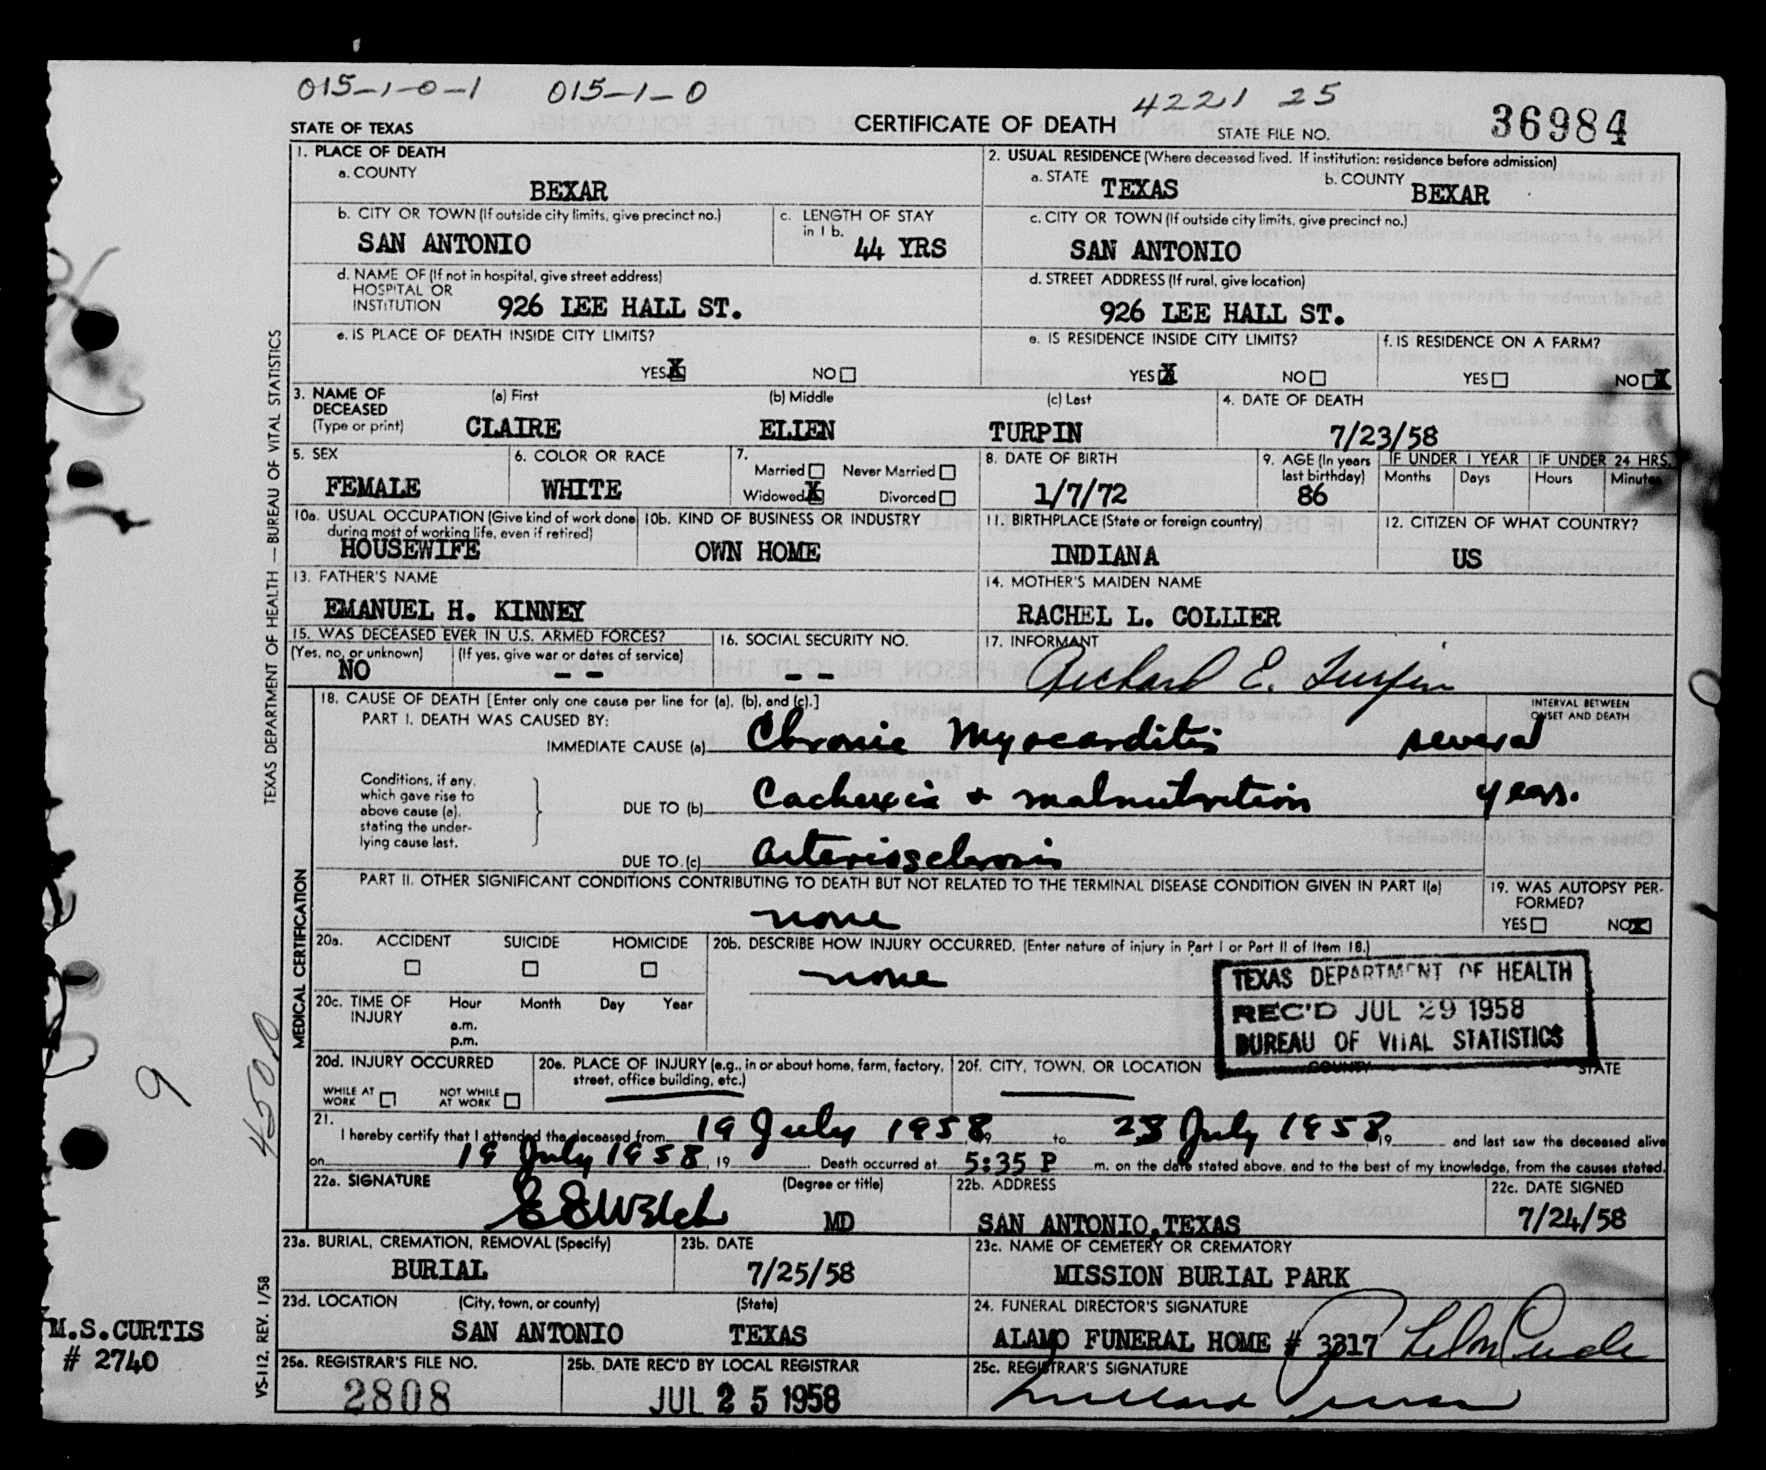 015-1-0-1 015-1-0 4221 25
STATE OF TEXAS CERTIFICATE OF DEATH STATE FILE NO. 36984
1. PLACE OF DEATH
a. COUNTY
BEXAR
2. USUAL RESIDENCE (Where deceased lived. If institution: residence before admission)
a. STATE TEXAS b. COUNTY BEXAR
b. CITY OR TOWN (If outside city limits, give precinct no.)
SAN ANTONIO
c. LENGTH OF STAY
in 1 b.
44 YRS
c. CITY OR TOWN (If outside city limits, give precinct no.)
SAN ANTONIO
d. NAME OF (If not in hospital, give street address)
HOSPITAL OR
INSTITUTION 926 LEE HALL ST.
d. STREET ADDRESS (If rural, give location)
926 LEE HALL ST.
e. IS PLACE OF DEATH INSIDE CITY LIMITS?
YES X NO
e. IS RESIDENCE INSIDE CITY LIMITS?
YES X NO
f. IS RESIDENCE ON A FARM?
YES NO X
3. NAME OF
DECEASED
(Type or print)
(a) First (b) Middle (c) Last
CLAIRE ELLEN TURPIN
4. DATE OF DEATH
7/23/58
5. SEX
FEMALE
6. COLOR OR RACE
WHITE
7.
Married Never Married
Widowed X Divorced
8. DATE OF BIRTH
1/7/72
9. AGE (In years
last birthday)
86
IF UNDER 1 YEAR IF UNDER 24 HRS.
Months Days Hours Minutes
10a. USUAL OCCUPATION (Give kind of work done
during most of working life, even if retired)
HOUSEWIFE
10b. KIND OF BUSINESS OR INDUSTRY
OWN HOME
11. BIRTHPLACE (State or foreign country)
INDIANA
12. CITIZEN OF WHAT COUNTRY?
US
13. FATHER'S NAME
EMANUEL H. KINNEY
14. MOTHER'S MAIDEN NAME
RACHEL L. COLLIER
15. WAS DECEASED EVER IN U.S. ARMED FORCES?
(Yes, no, or unknown) (If yes, give war or dates of service)
NO - -
16. SOCIAL SECURITY NO.
- -
17. INFORMANT
Richard E. Turpin
18. CAUSE OF DEATH [Enter only one cause per line for (a), (b), and (c).]
PART I. DEATH WAS CAUSED BY:
INTERVAL BETWEEN
ONSET AND DEATH
IMMEDIATE CAUSE (a) Chronic Myocarditis several
Conditions, if any,
which gave rise to
above cause (a),
stating the under-
lying cause last.
DUE TO (b) Cachexia + malnutrition years.
DUE TO (c) arteriosclerosis
PART II. OTHER SIGNIFICANT CONDITIONS CONTRIBUTING TO DEATH BUT NOT RELATED TO THE TERMINAL DISEASE CONDITION GIVEN IN PART I(a)
none
19. WAS AUTOPSY PER-
FORMED?
YES NO X
20a. ACCIDENT SUICIDE HOMICIDE
20b. DESCRIBE HOW INJURY OCCURRED. (Enter nature of injury in Part I or Part II of Item 18.)
none
TEXAS DEPARTMENT OF HEALTH
REC'D JUL 29 1958
BUREAU OF VITAL STATISTICS
20c. TIME OF
INJURY
Hour Month Day Year
a.m.
p.m.
20d. INJURY OCCURRED
WHILE AT
WORK
NOT WHILE
AT WORK
20e. PLACE OF INJURY (e.g., in or about home, farm, factory,
street, office building, etc.)
20f. CITY, TOWN, OR LOCATION COUNTY STATE
21.
I hereby certify that I attended the deceased from 19 July 1958, 19 to 23 July 1958, 19 and last saw the deceased alive
on 19 July 1958, 19 Death occurred at 5:35 P m. on the date stated above, and to the best of my knowledge, from the causes stated.
22a. SIGNATURE (Degree or title)
E E Welch MD
22b. ADDRESS
SAN ANTONIO, TEXAS
22c. DATE SIGNED
7/24/58
23a. BURIAL, CREMATION, REMOVAL (Specify)
BURIAL
23b. DATE
7/25/58
23c. NAME OF CEMETERY OR CREMATORY
MISSION BURIAL PARK
23d. LOCATION (City, town, or county) (State)
SAN ANTONIO TEXAS
24. FUNERAL DIRECTOR'S SIGNATURE
ALAMO FUNERAL HOME # 3317
25a. REGISTRAR'S FILE NO.
2808
25b. DATE REC'D BY LOCAL REGISTRAR
JUL 25 1958
25c. REGISTRAR'S SIGNATURE
TEXAS DEPARTMENT OF HEALTH — BUREAU OF VITAL STATISTICS
MEDICAL CERTIFICATION
VS-112, REV. 1/58
9
450.0
M.S.CURTIS
# 2740